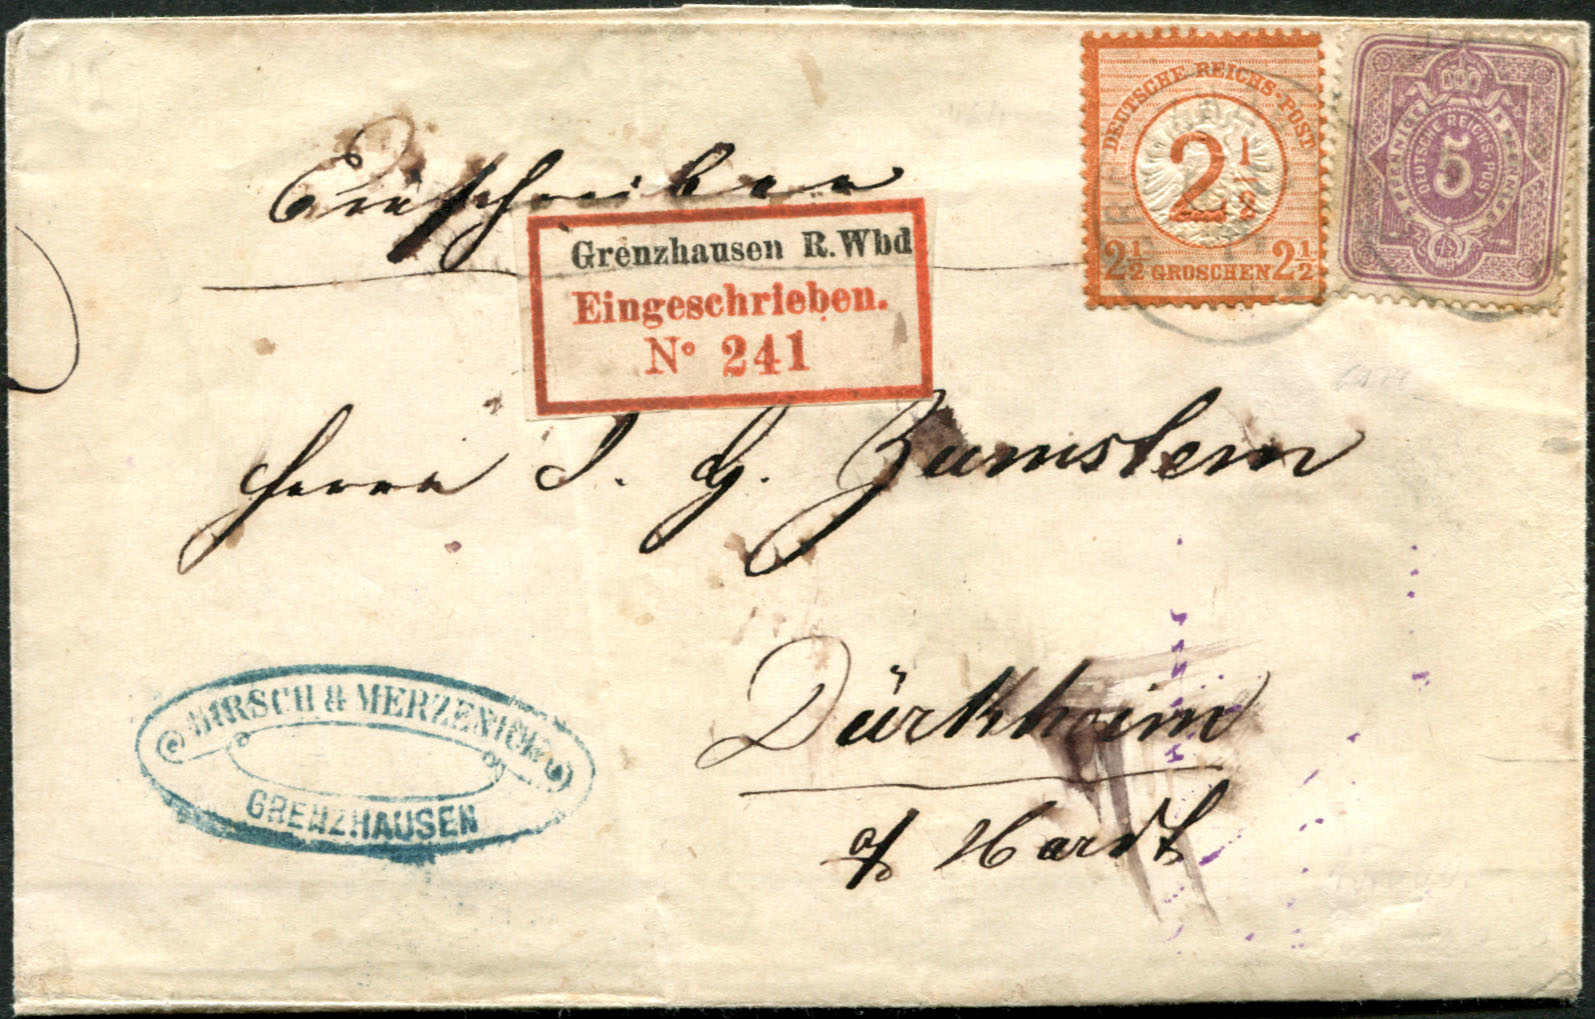 Einschreiben
Grenzhausen R. Wbd
Eingeschrieben.
Nº 241
DEUTSCHE REICHS-POST
2 1/2
2 1/2 GROSCHEN 2 1/2
PFENNIGE PFENNIGE
DEUTSCHE REICHS-POST
5
Herrn J. G. Zumstein
Dürkheim
a/d Hardt
HIRSCH & MERZENICH
GRENZHAUSEN